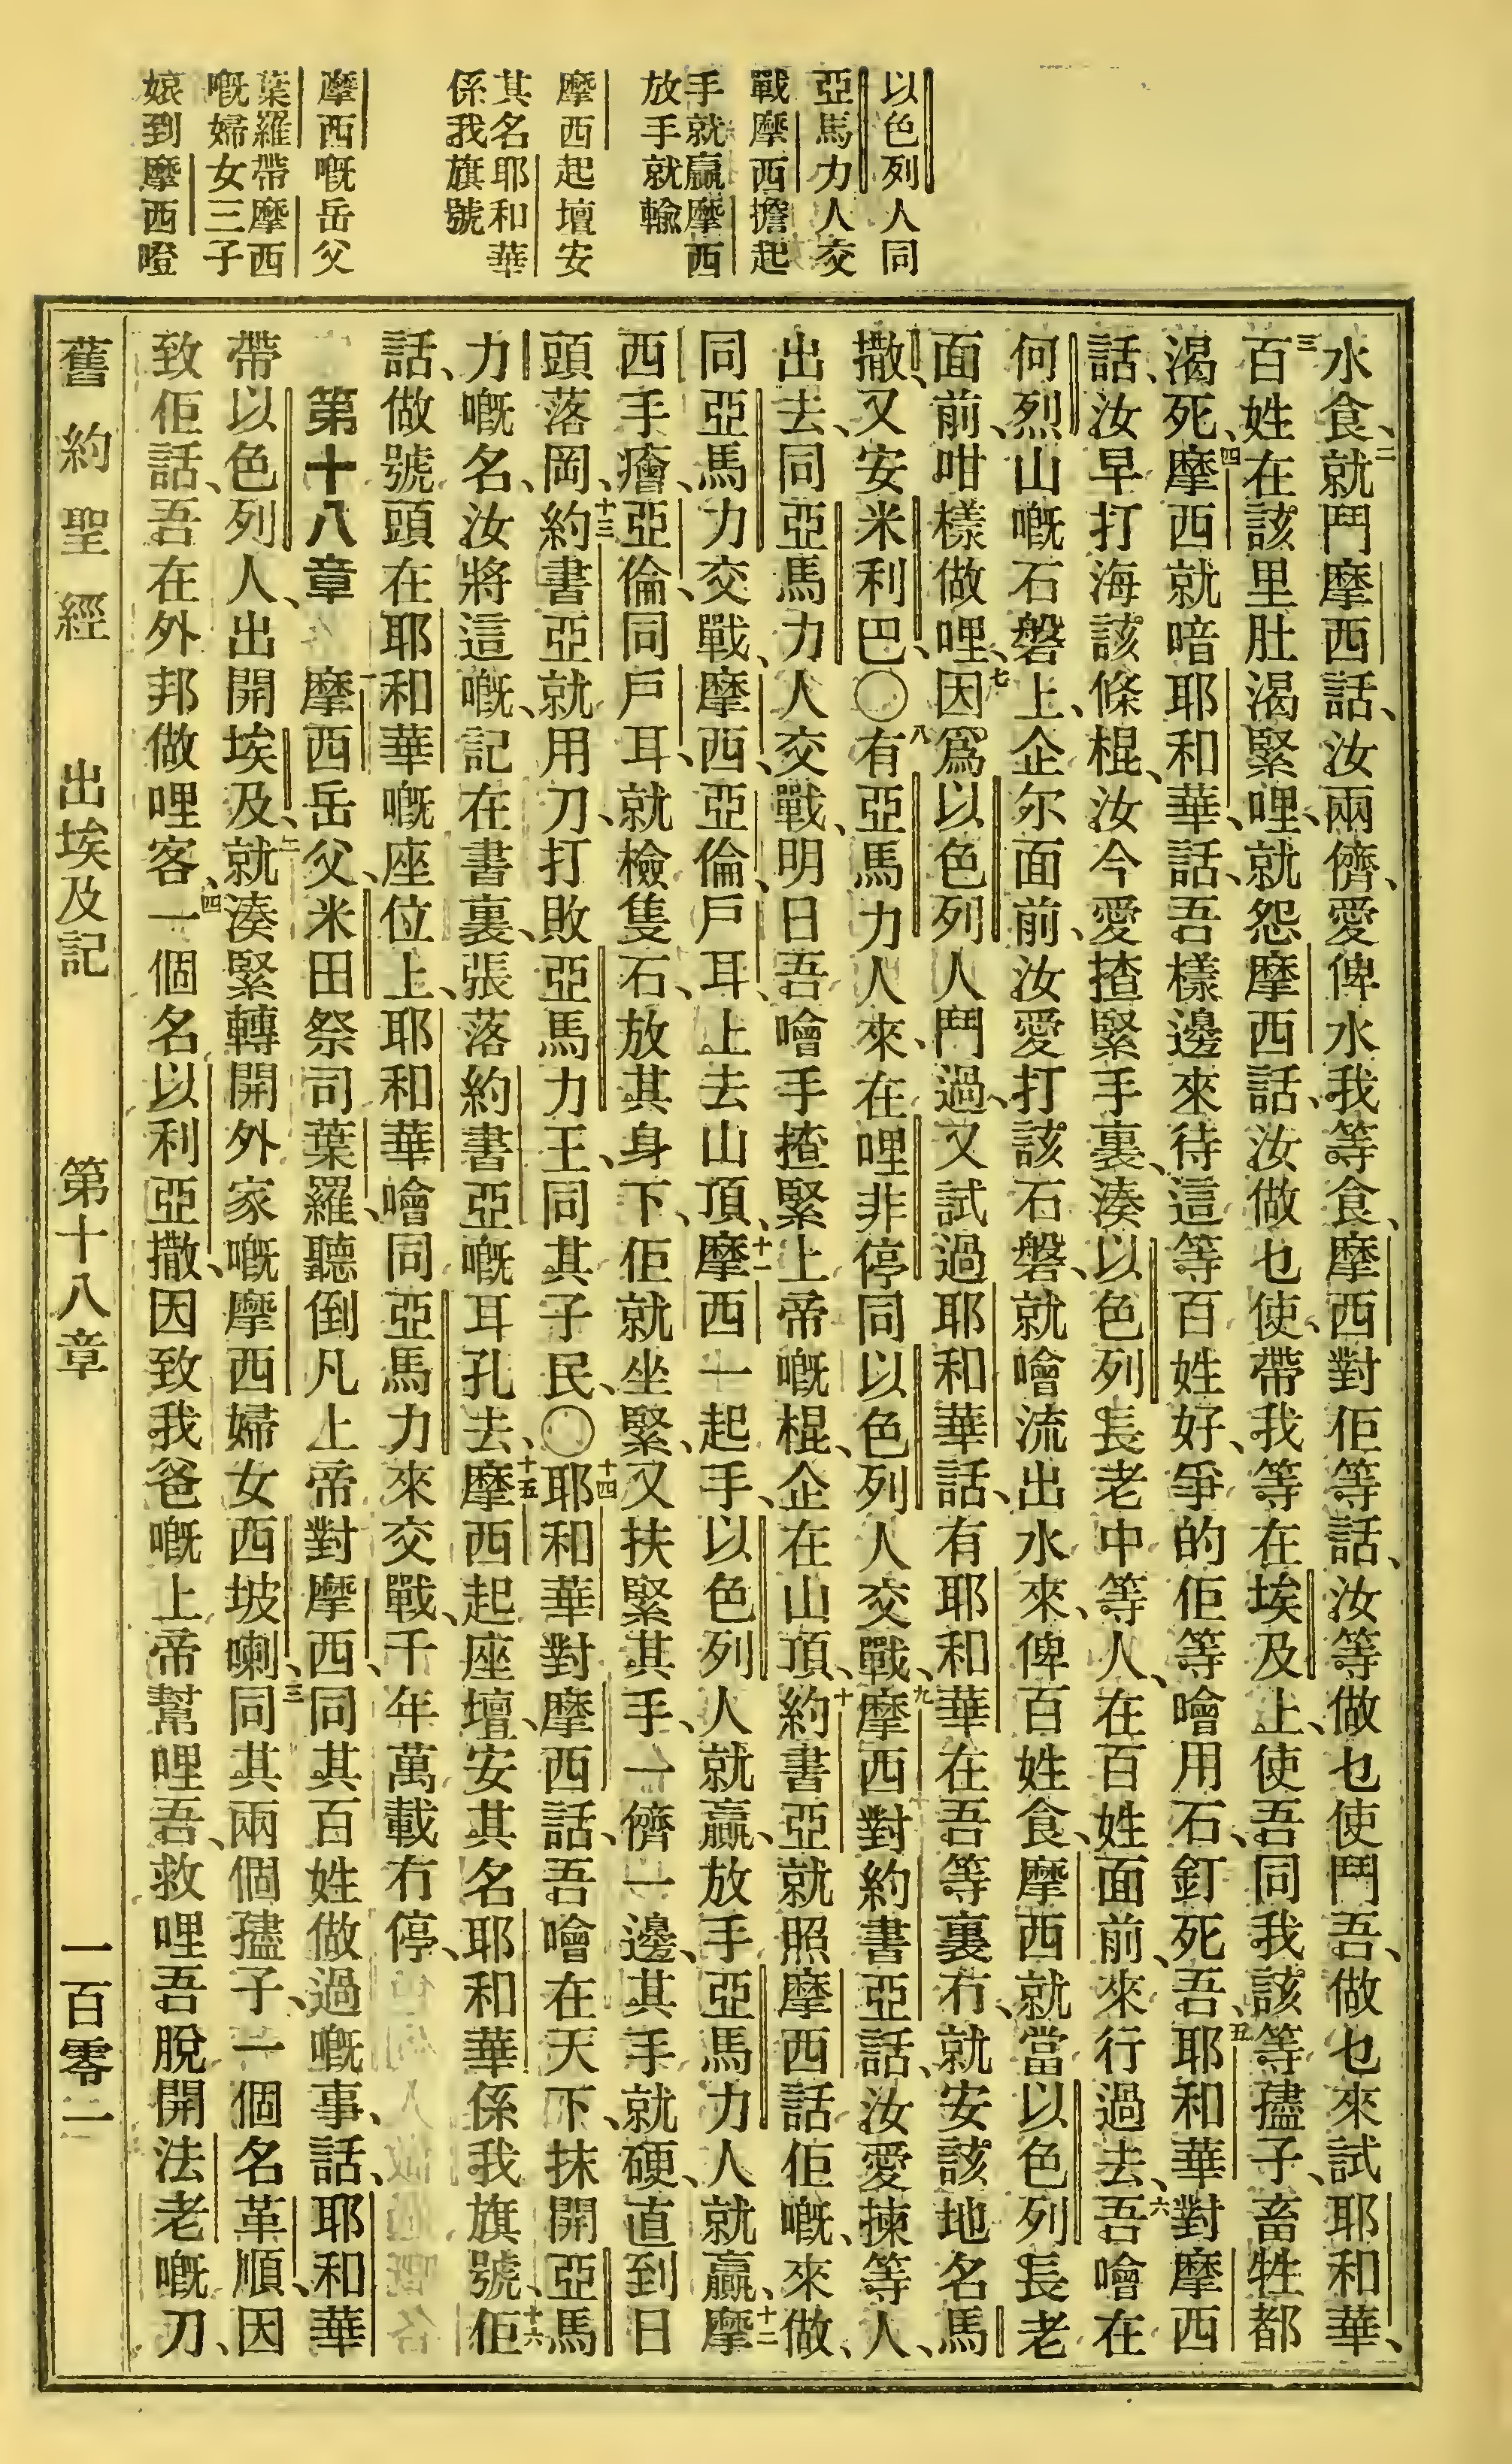 以色列人同
亞馬力人交
戰摩西擔起
手就贏摩西
放手就輸
摩西起壇安
其名耶和華
係我旗號
摩西嘅岳父
葉羅帶摩西
嘅婦女三子
娘到摩西嶝
水食、二就鬥摩西話、汝兩儕、愛俾水我等食、摩西對佢等話、汝等做乜使鬥吾、做乜來試耶和華、
三百姓在該里肚渴緊哩、就怨摩西話、汝做乜使、帶我等在埃及上、使吾同我該等孻子、畜牲都
渴死、四摩西就喑耶和華、話、吾樣邊來待這等百姓好、爭的佢等噲用石、釘死吾、五耶和華對摩西
話、汝早打海該條棍、汝今愛揸緊手裏、湊以色列長老中等人、在百姓面前、來行過去、六吾噲在
何烈山嘅石磐上、企尔面前、汝愛打該石磐、就噲流出水來、俾百姓食、摩西就當以色列長老
面前、咁樣做哩、七因爲以色列人鬥過、又試過耶和華話、有耶和華在吾等裏冇、就安該地名馬
撒、又安米利巴、〇八有亞馬力人來、在哩非停同以色列人交戰、九摩西對約書亞話、汝愛揀等人、
出去、同亞馬力人交戰、明日吾噲手揸緊上帝嘅棍、企在山頂、十約書亞就照摩西話佢嘅、來做、
同亞馬力交戰、摩西、亞倫、戶耳、上去山頂、十一摩西一起手、以色列人就贏、放手亞馬力人就贏、十二摩
西手癐、亞倫、同戶耳、就檢隻石、放其身下、佢就坐緊、又扶緊其手、一儕一邊、其手就硬、直到日
頭落岡、十三約書亞就用刀、打敗亞馬力王、同其子民、〇十四耶和華對摩西話、吾噲在天下、抹開亞馬
力嘅名、汝將這嘅、記在書裏、張落約書亞嘅耳孔去、十五摩西起座壇、安其名耶和華係我旗號、十六佢
話、做號頭在耶和華嘅座位上、耶和華噲同亞馬力來交戰、千年萬載冇停、
第十八章 一摩西岳父、米田祭司葉羅、聽倒凡上帝對摩西、同其百姓做過嘅事、話、耶和華
帶以色列人、出開埃及、二就湊緊轉開外家嘅摩西婦女西坡喇、三同其兩個孻子、一個名革順、因
致佢話、吾在外邦做哩客、四一個名以利亞撒、因致我爸嘅上帝幫哩吾、救哩吾脫開法老嘅刀、
舊約聖經 出埃及記 第十八章 一百零二